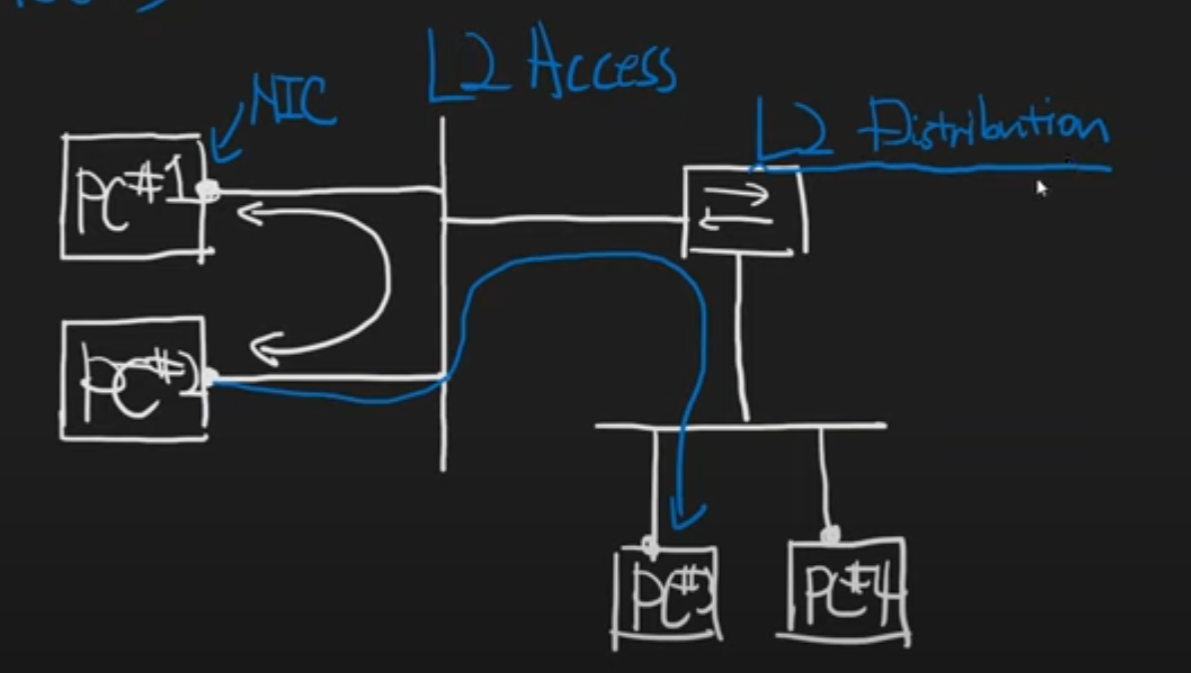 L2 Access
NIC
L2 Distribution
PC#1
PC#2
PC#3
PC#4